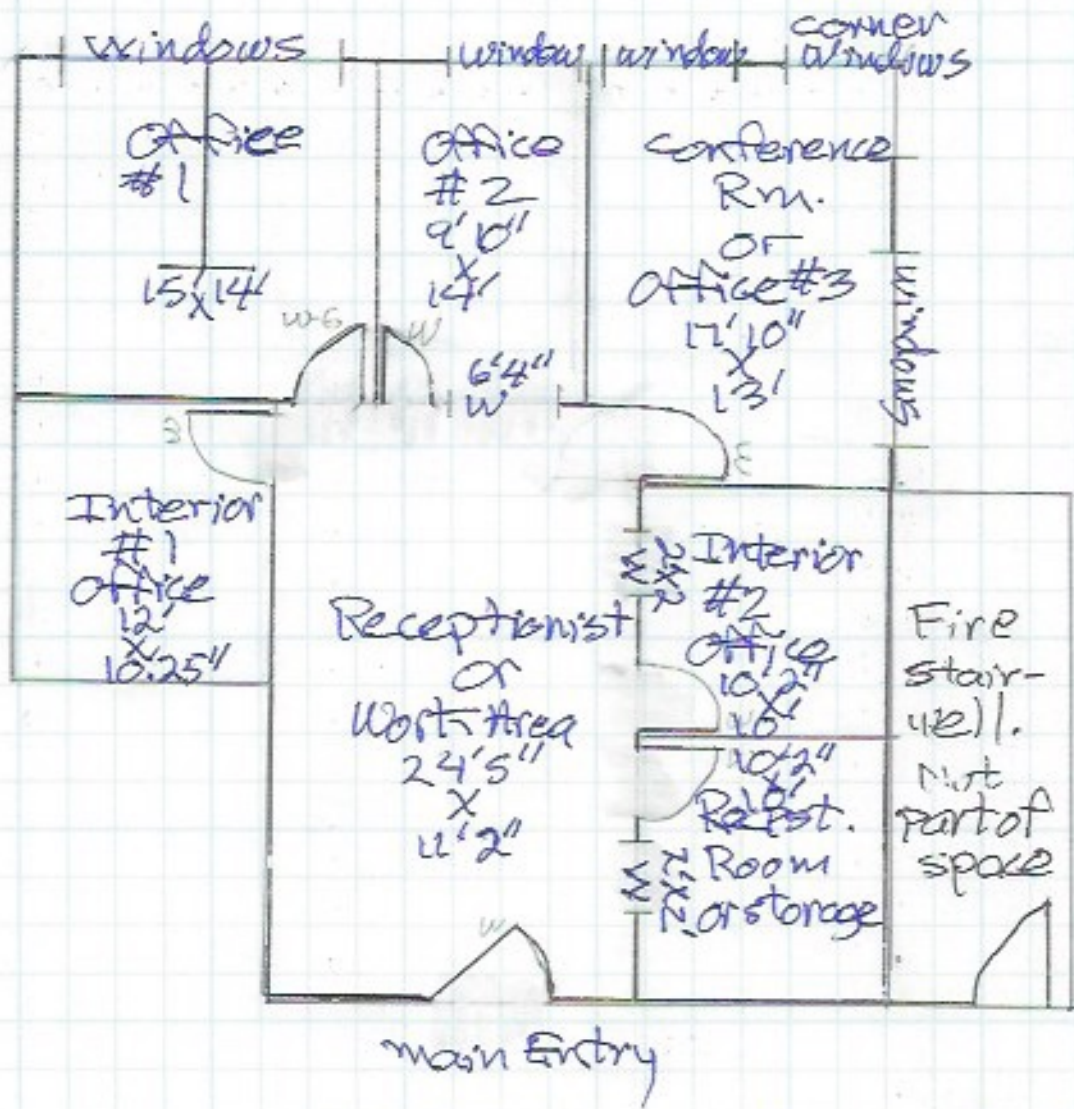 Windows
window
window
corner
Windows
Office
#1
15' X 14'
Office
#2
9'10"
X
14'
6'4"
W
Conference
Rm.
or
Office #3
17'10"
X
13'
windows
W-6
W
Interior
#1
Office
12'
X
10.25"
Receptionist
or
Work Area
24'5"
X
11'2"
W
2'X2'
Interior
#2
Office
10'2"
X
10'
10'2"
X
10'
Recpst.
Room
or storage
W
2'X2'
Fire
stair-
well.
Not
part of
space
W
Main Entry